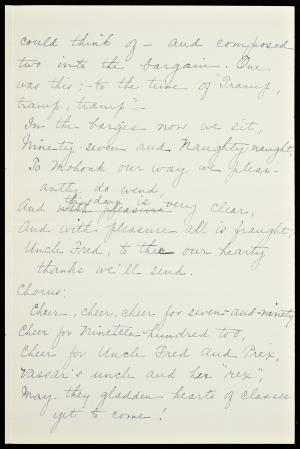 could think of - and composed
two into the bargain. One
was this:- to the tune of "Tramp,
tramp, tramp":-
In the barges now we sit,
Ninety-seven and Naughty-naught,
To Mohonk our way we pleas-
antly do wend,
the day is
And with pleasure very clear,
And with pleasure all is fraught;
Uncle Fred, to thee our hearty
thanks we'll send.
Chorus:
Cheer, cheer, cheer for seven-and-ninety
Cheer for Nineteen-hundred too,
Cheer for Uncle Fred and Prex,
Vassar's uncle and her "rex",
May they gladden hearts of classes
yet to come!